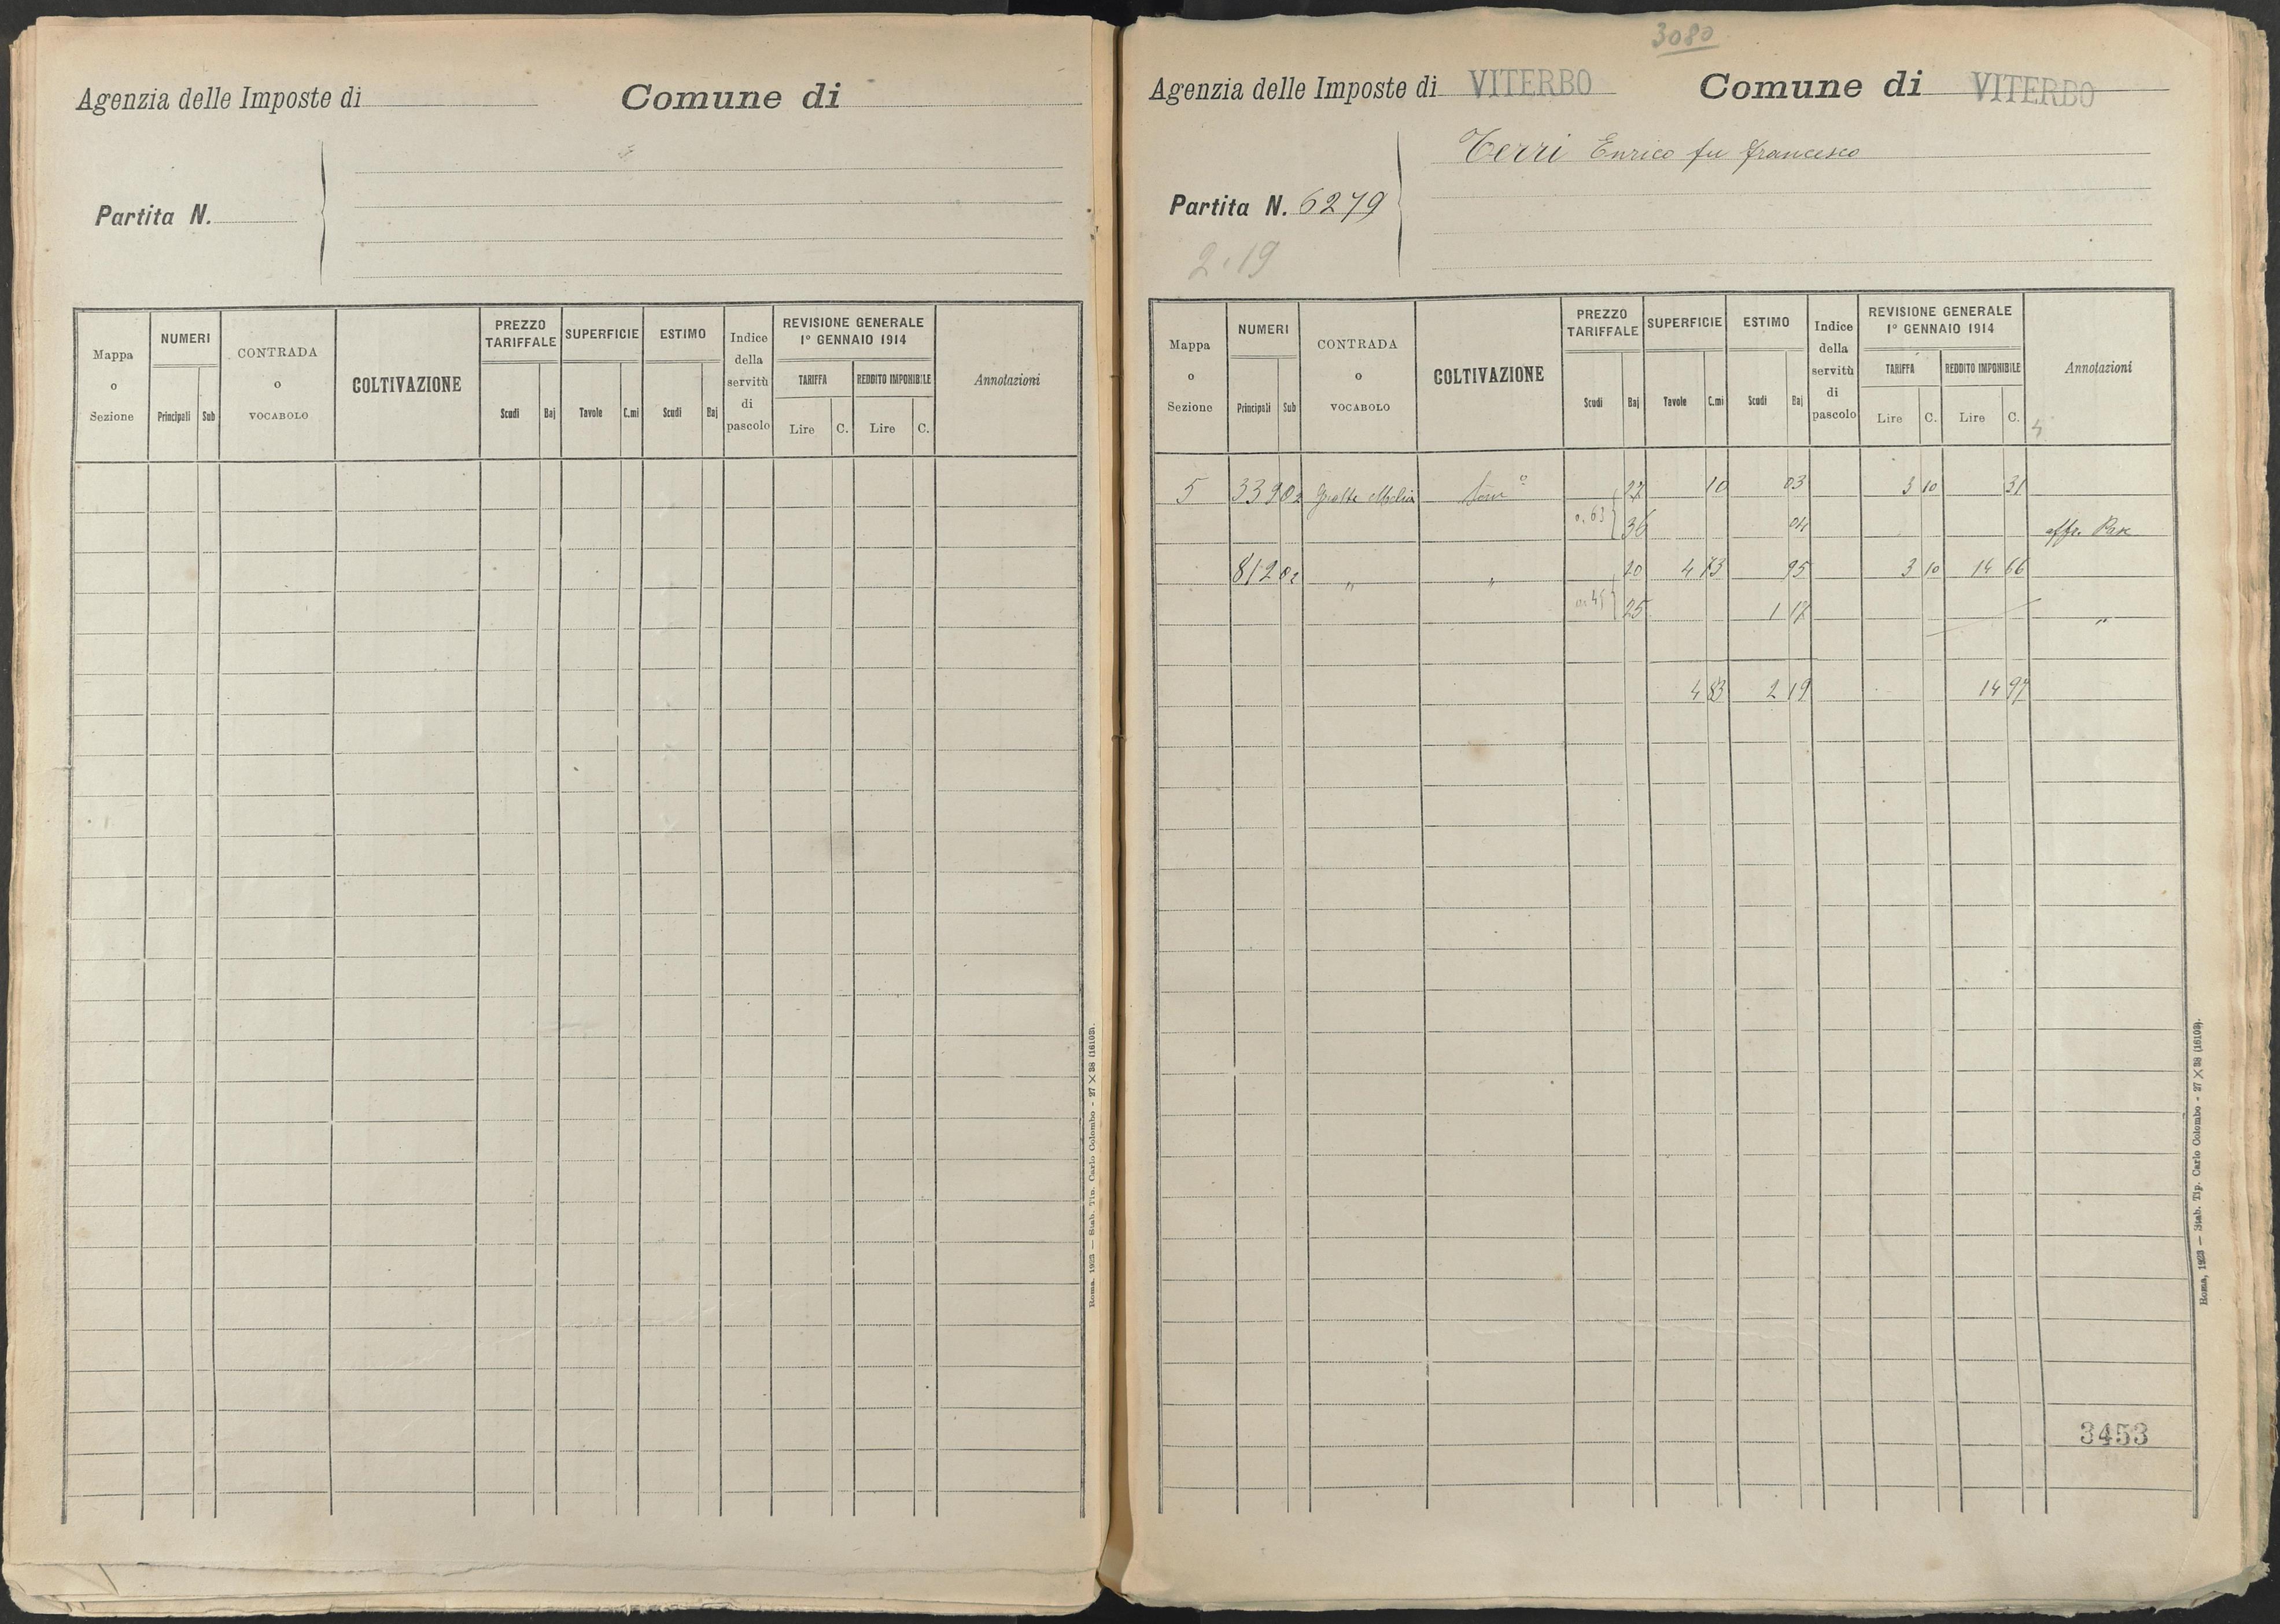 Agenzia delle Imposte di Comune di
Partita N.
Mappa o Sezione
NUMERI
Principali Sub
CONTRADA o VOCABOLO
COLTIVAZIONE
PREZZO TARIFFALE
Scudi Baj
SUPERFICIE
Tavole C.mi
ESTIMO
Scudi Baj
Indice della servitù di pascolo
REVISIONE GENERALE
1° GENNAIO 1914
TARIFFA REDDITO IMPONIBILE
Lire C. Lire C.
Annotazioni
Roma, 1923 — Stab. Tip. Carlo Colombo - 27 X 38 (16103).
3080
Agenzia delle Imposte di VITERBO Comune di VITERBO
Terri Enrico fu Francesco
Partita N. 6279
2.19
Mappa o Sezione
NUMERI
Principali Sub
CONTRADA o VOCABOLO
COLTIVAZIONE
PREZZO TARIFFALE
Scudi Baj
SUPERFICIE
Tavole C.mi
ESTIMO
Scudi Baj
Indice della servitù di pascolo
REVISIONE GENERALE
1° GENNAIO 1914
TARIFFA REDDITO IMPONIBILE
Lire C. Lire C.
Annotazioni
5 339 02 Grotte 27 10 03 3 10 31
0.63 36 04 affr.
812 02 " " 20 4 73 95 3 10 14 66
45 25 1 17 "
4 83 2 19 14 97
3453
Roma, 1923 — Stab. Tip. Carlo Colombo - 27 X 38 (16103).